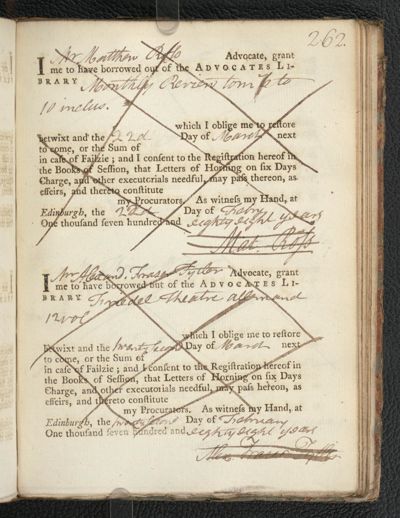 262.
I Mr Matthew Ross Advocate, grant
me to have borrowed out of the ADVOCATES LI-
BRARY Monthly Review tom to
10 inclus.
which I oblige me to restore
betwixt and the 22d Day of March next
to come, or the Sum of
in case of Failzie; and I consent to the Registration hereof in
the Books of Session, that Letters of Horning on six Days
Charge, and other executorials needful, may pass thereon, as
effeirs, and thereto constitute
my Procurators. As witness my Hand, at
Edinburgh, the 22d Day of Febry
One thousand seven hundred and eighty eight years
Mat. Ross
I Mr Alexand. Fraser Tytler Advocate, grant
me to have borrowed out of the ADVOCATES LI-
BRARY Theatre allemand
12 vol
which I oblige me to restore
betwixt and the twenty eight Day of March next
to come, or the Sum of
in case of Failzie; and I consent to the Registration hereof in
the Books of Session, that Letters of Horning on six Days
Charge, and other executorials needful, may pass hereon, as
effeirs, and thereto constitute
my Procurators. As witness my Hand, at
Edinburgh, the Day of February
One thousand seven hundred and eighty eight years
Alex Fraser Tytler